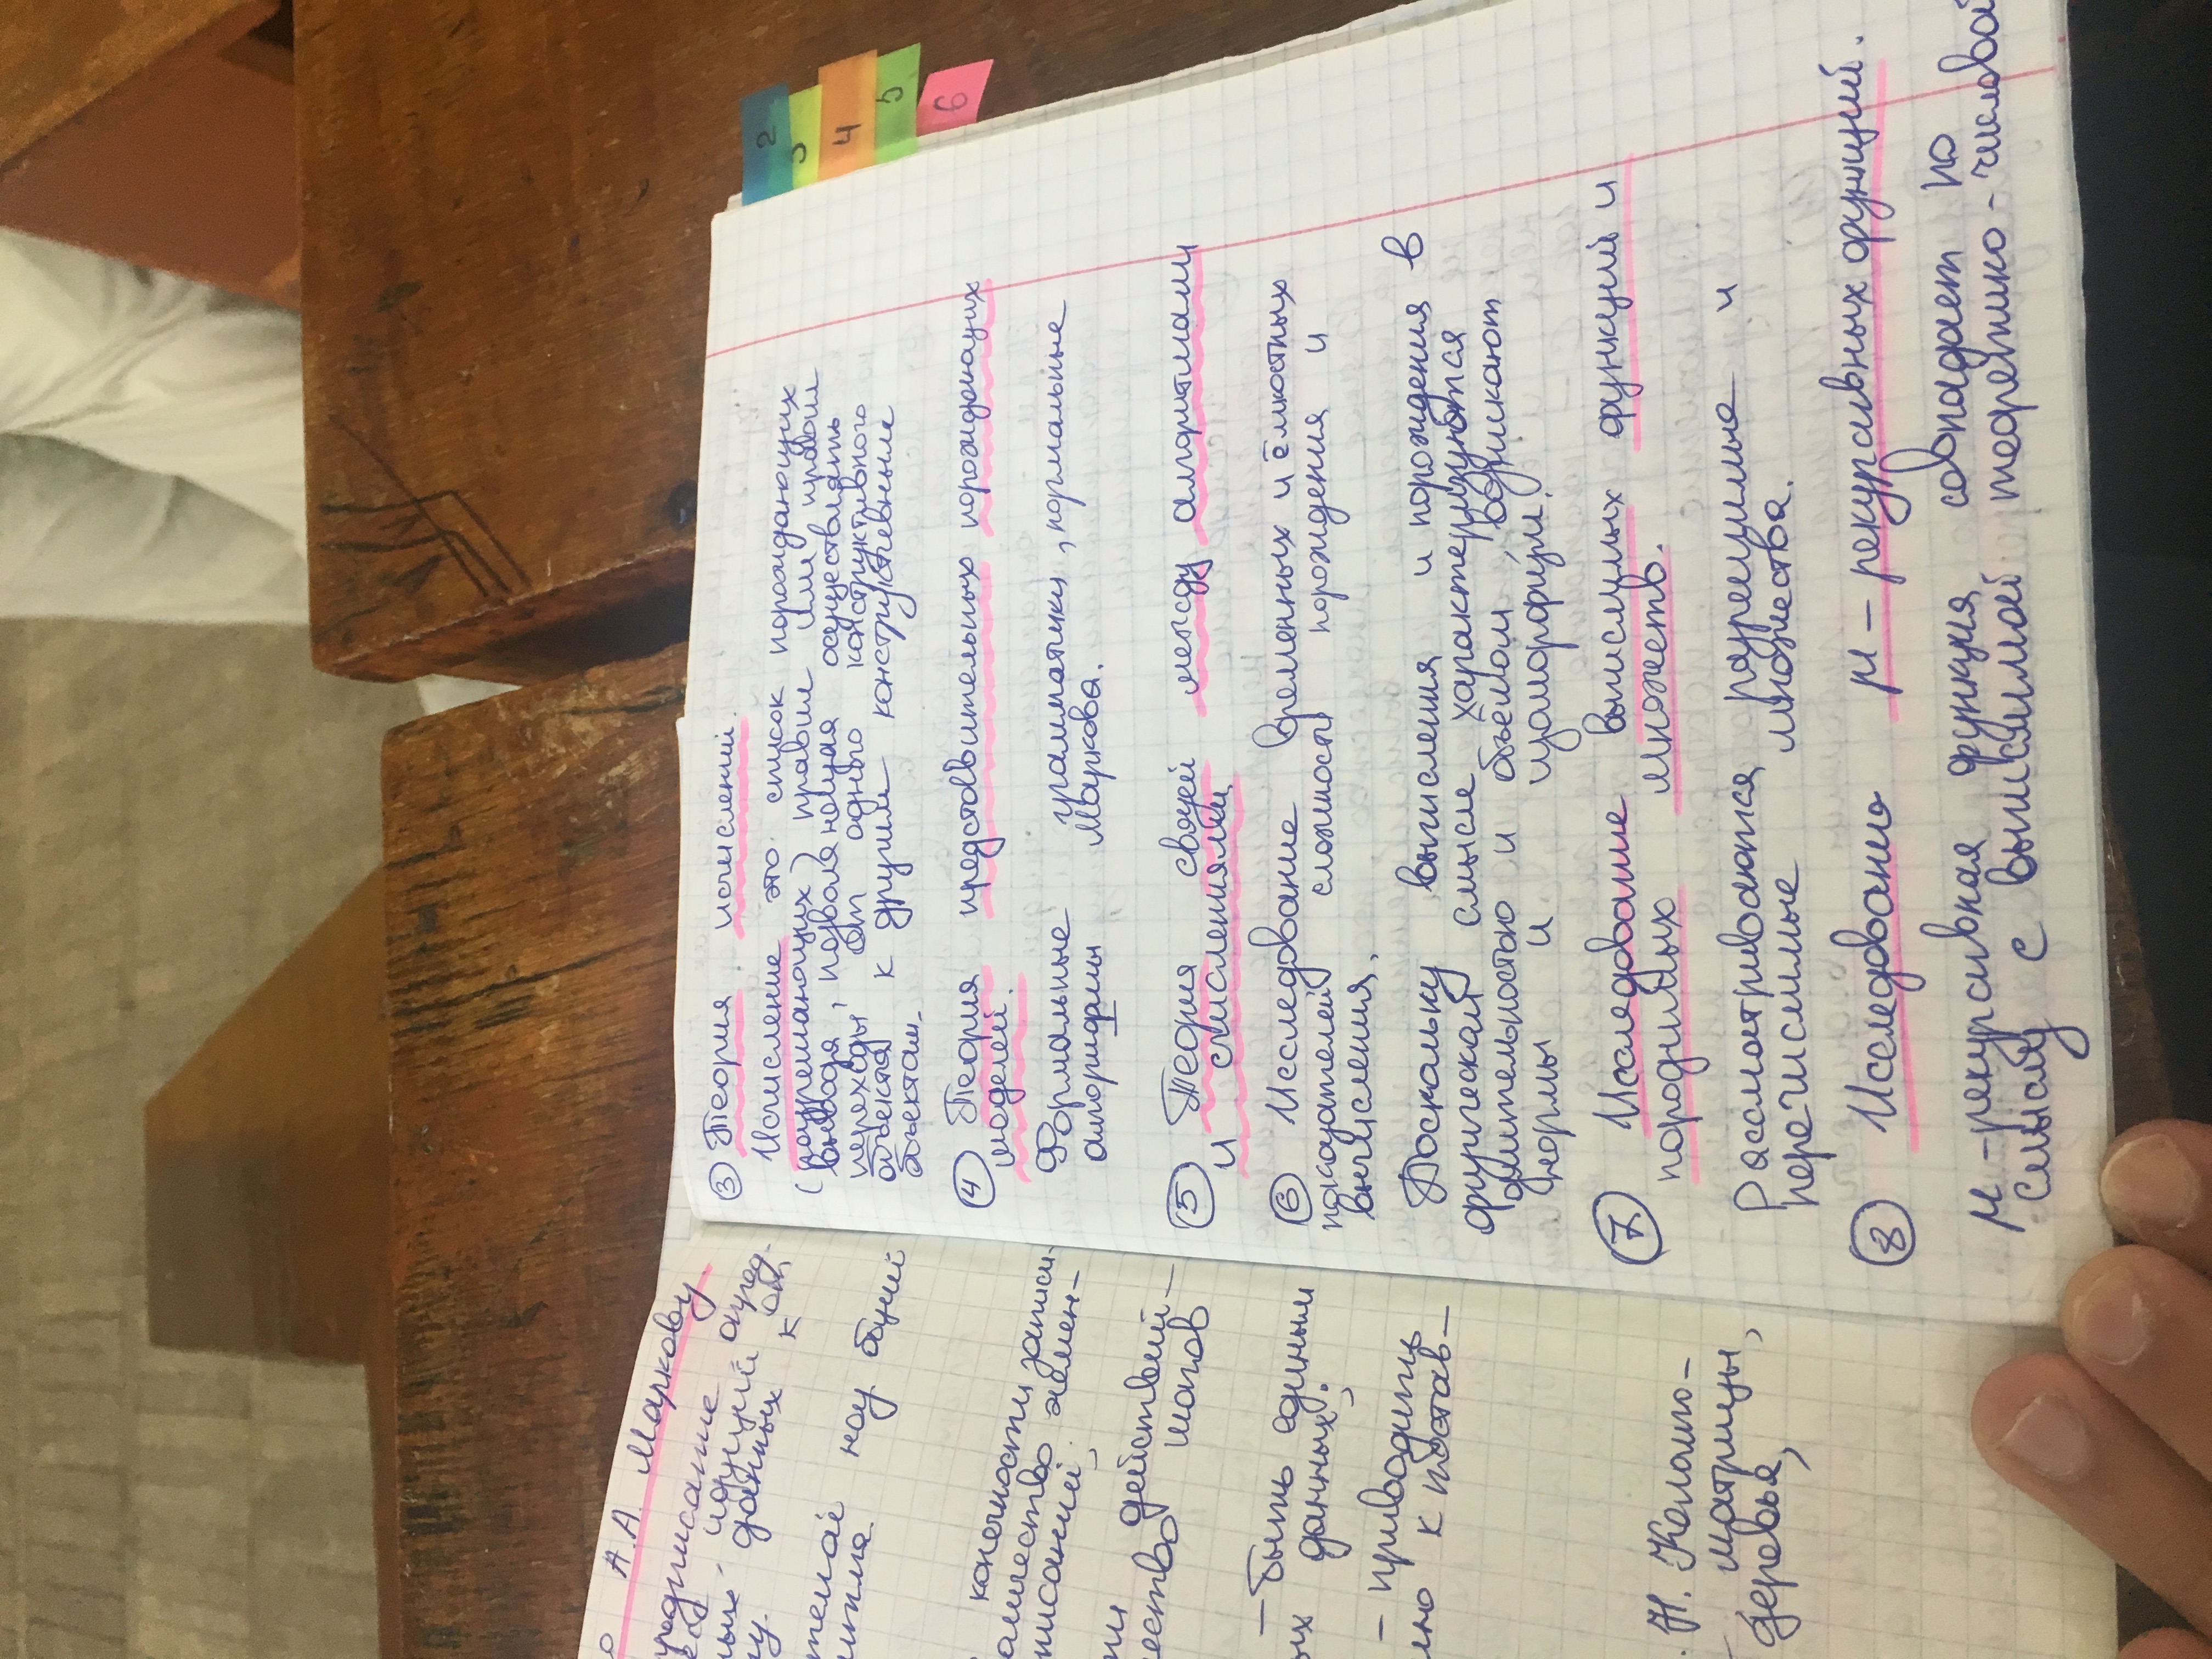 о А.А. Маркову
предписание опред-
идущий от
ных данных к
ну.
наз. общий
конечности записи-
количество элемен-
писаний;
действий-
чество шагов
- быть единым
ых данных;
- приводить
к постав-
. Н. Колмого-
матрицы,
деревья,
③ Теория исчислений.
Исчисление это список порождающих
(разрешающих) правил или правил
вывода, позволяющая осуществлять
переходы от одного конструктивного
объекта к другим конструктивным
объектам.
④ Теория представительных порождающих
моделей.
Формальные грамматики, нормальные
алгорифмы Маркова.
⑤ Теория связей между алгоритмами
и счислениями
⑥ Исследование временных и ёмкостных
показателей сложности порождения и
вычисления.
Поскольку вычисления и порождения в
физическом смысле характеризуются
длительностью и объёмом, возникают
нормы и изоморфизм.
⑦ Исследование вычислимых функций и
породимых множеств.
Рассматриваются разрешимые и
перечислимые множества.
⑧ Исследование μ - рекурсивных функций.
μ - рекурсивная функция совпадает по
смыслу с вычислимой теоретико - числовой
2
3
4
5
6